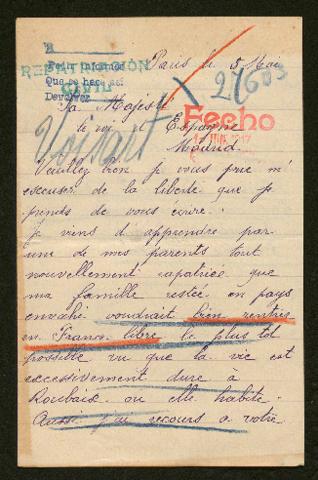 Paris le 5 Mai
REPATRIACION
CIVIL
Pedir informes
Que se hace así
Devolver
27603
Sa Majesté
le roi Espagne
Madrid
Fecho
1917
Voisart
Veuillez bien je vous prie m'
excuser de la liberté que je
prends de vous écrire.
Je viens d'apprendre par
une de mes parents tout
nouvellement rapatriée que
ma famille restée en pays
envahi voudrait bien rentrer
en France libre le plus tôt
possible vu que la vie est
excessivement dure à
Roubaix ou elle habite.
Aussi j'ai recours a votre